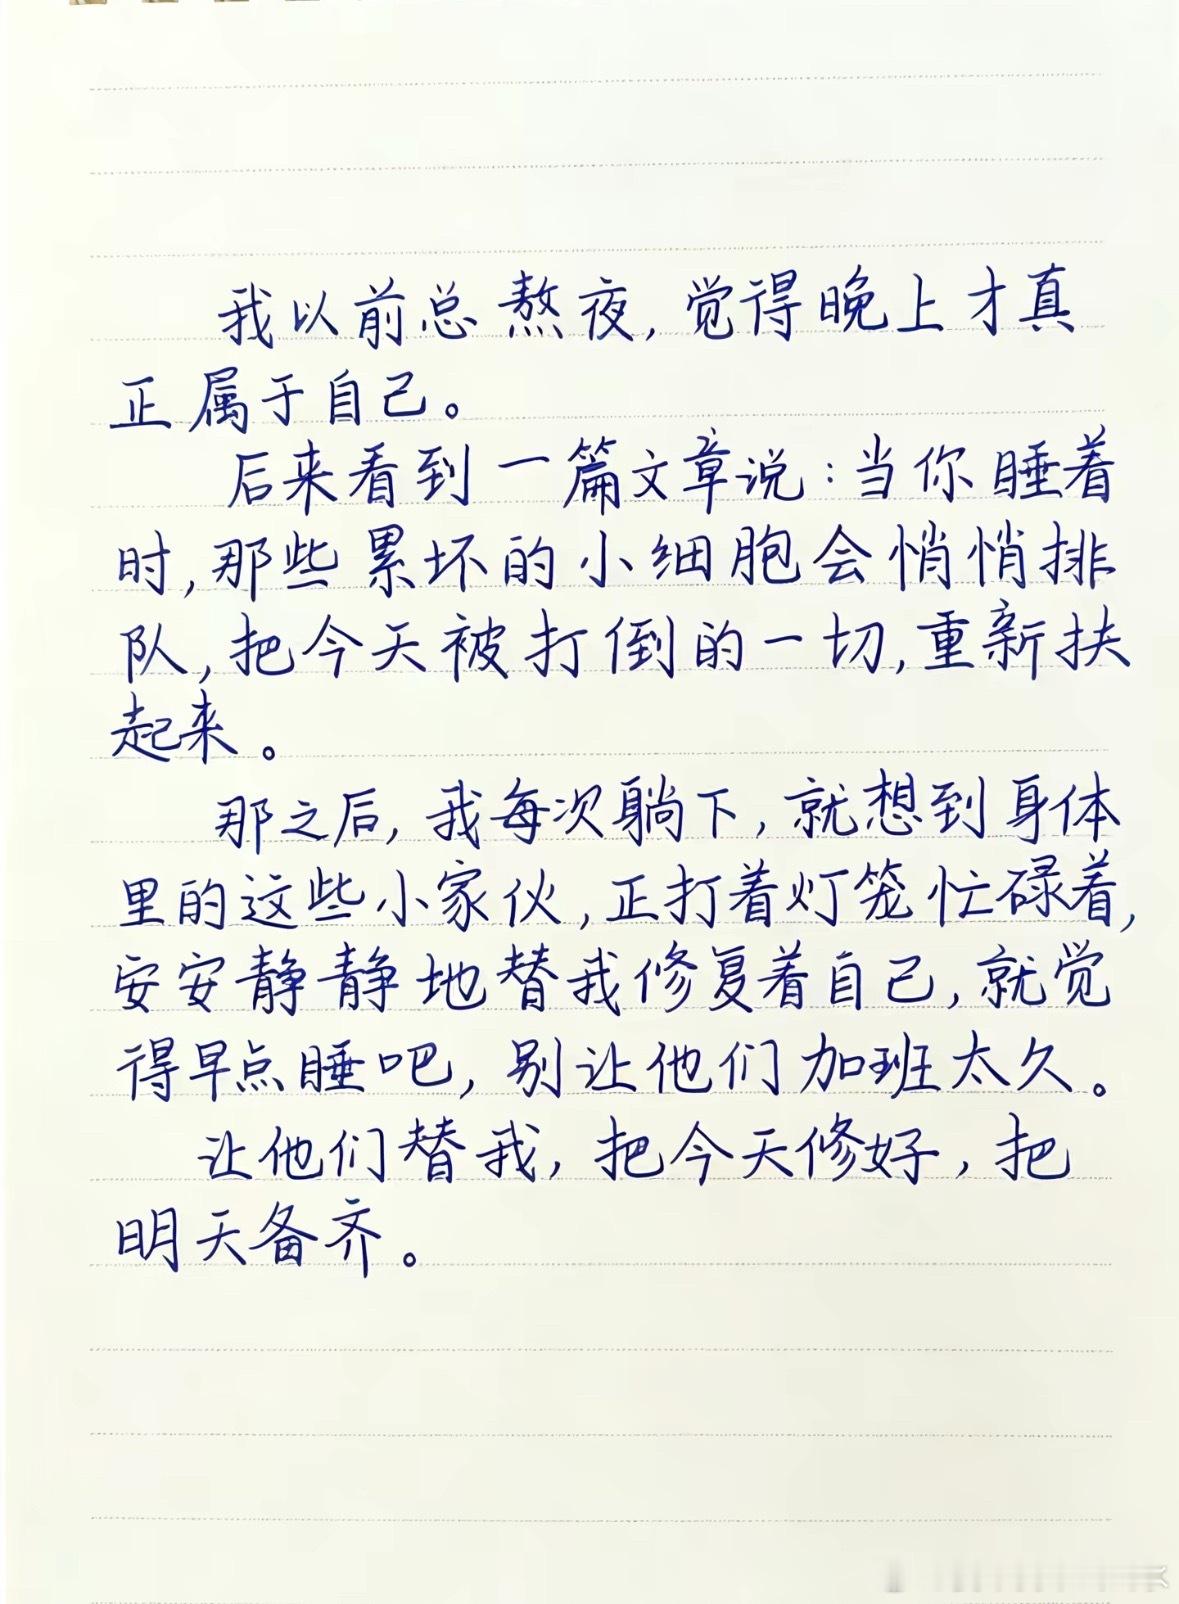 我以前总熬夜,觉得晚上才真
正属于自己。
后来看到一篇文章说:当你睡着
时,那些累坏的小细胞会悄悄排
队,把今天被打倒的一切,重新扶
起来。
那之后,我每次躺下,就想到身体
里的这些小家伙,正打着灯笼忙碌着,
安安静静地替我修复着自己,就觉
得早点睡吧,别让他们加班太久。
让他们替我,把今天修好,把
明天备齐。